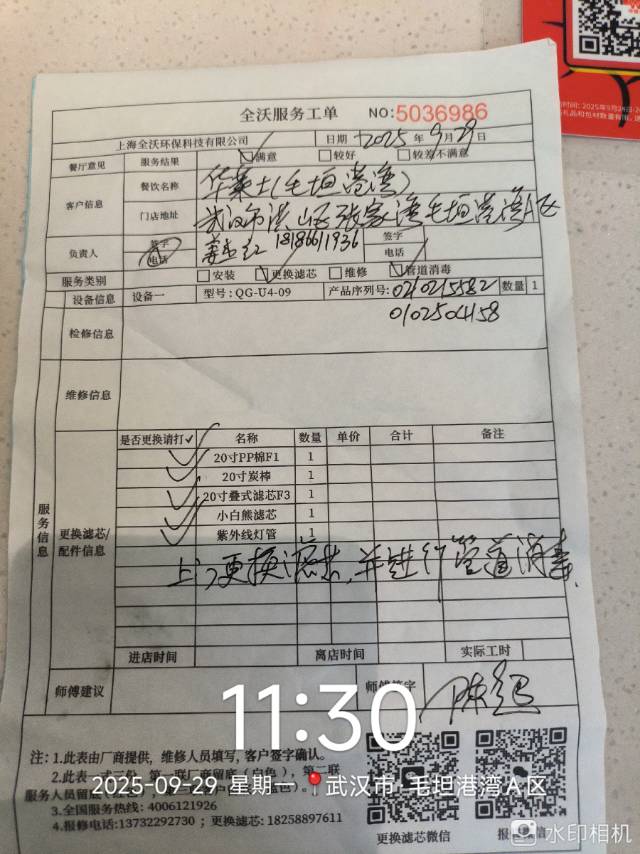 全沃服务工单 NO:5036986
上海全沃环保科技有限公司 日期 2025 年 9 月 29 日
餐厅意见 服务结果 满意 较好 较差不满意
客户信息 餐饮名称 华莱士(毛坦港湾)
门店地址 武汉市洪山区张家湾毛坦港湾A区
负责人 签字 电话 18186611936 签字 电话
服务类别 安装 更换滤芯 维修 管道消毒
设备信息 设备一 型号:QG-U4-09 产品序列号: 0210215582 数量 1
0102504158
检修信息
维修信息
服务信息
更换滤芯/配件信息
是否更换请打✓ 名称 数量 单价 合计 备注
✓ 20寸PP棉F1 1
✓ 20寸炭棒 1
✓ 20寸叠式滤芯F3 1
✓ 小白熊滤芯 1
✓ 紫外线灯管 1
上门更换滤芯,并进行管道消毒.
进店时间 离店时间 实际工时
师傅建议 师傅签字
11:30
注:1.此表由厂商提供,维修人员填写,客户签字确认。
2.此表一式三份,第一联厂商留底(白色),第二联
2025-09-29 星期一 武汉市·毛坦港湾A区
服务人员留
3.全国服务热线:4006121926
4.报修电话:13732292730;更换滤芯:18258897611
更换滤芯微信 报修微信
水印相机